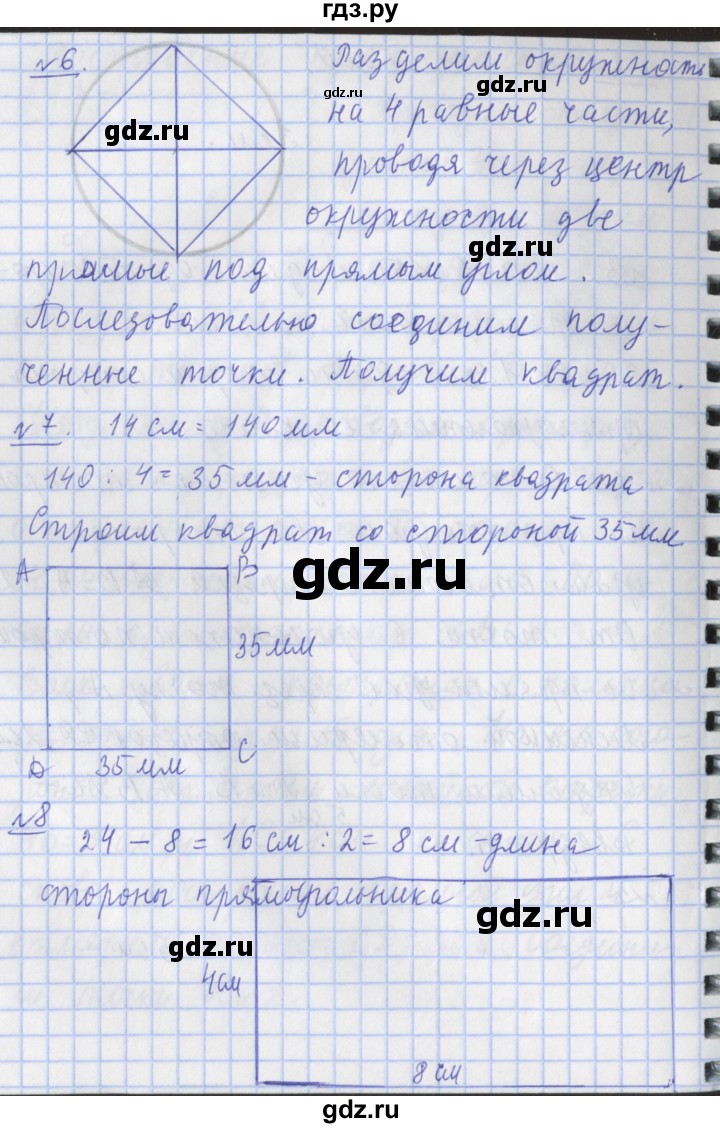 гдз.ру
№6. Разделим окружность
на 4 равные части,
проводя через центр
окружности две
прямые под прямым углом.
Последовательно соединим полу-
ченные точки. Получим квадрат.
№7. 14 см = 140 мм
140 : 4 = 35 мм - сторона квадрата
Строим квадрат со стороной 35 мм
A B
35 мм
D C
35 мм
№8
24 - 8 = 16 см : 2 = 8 см - длина
стороны прямоугольника
4 см
8 см
gdz.ru
gdz.ru
gdz.ru
gdz.ru
gdz.ru
gdz.ru
gdz.ru
gdz.ru